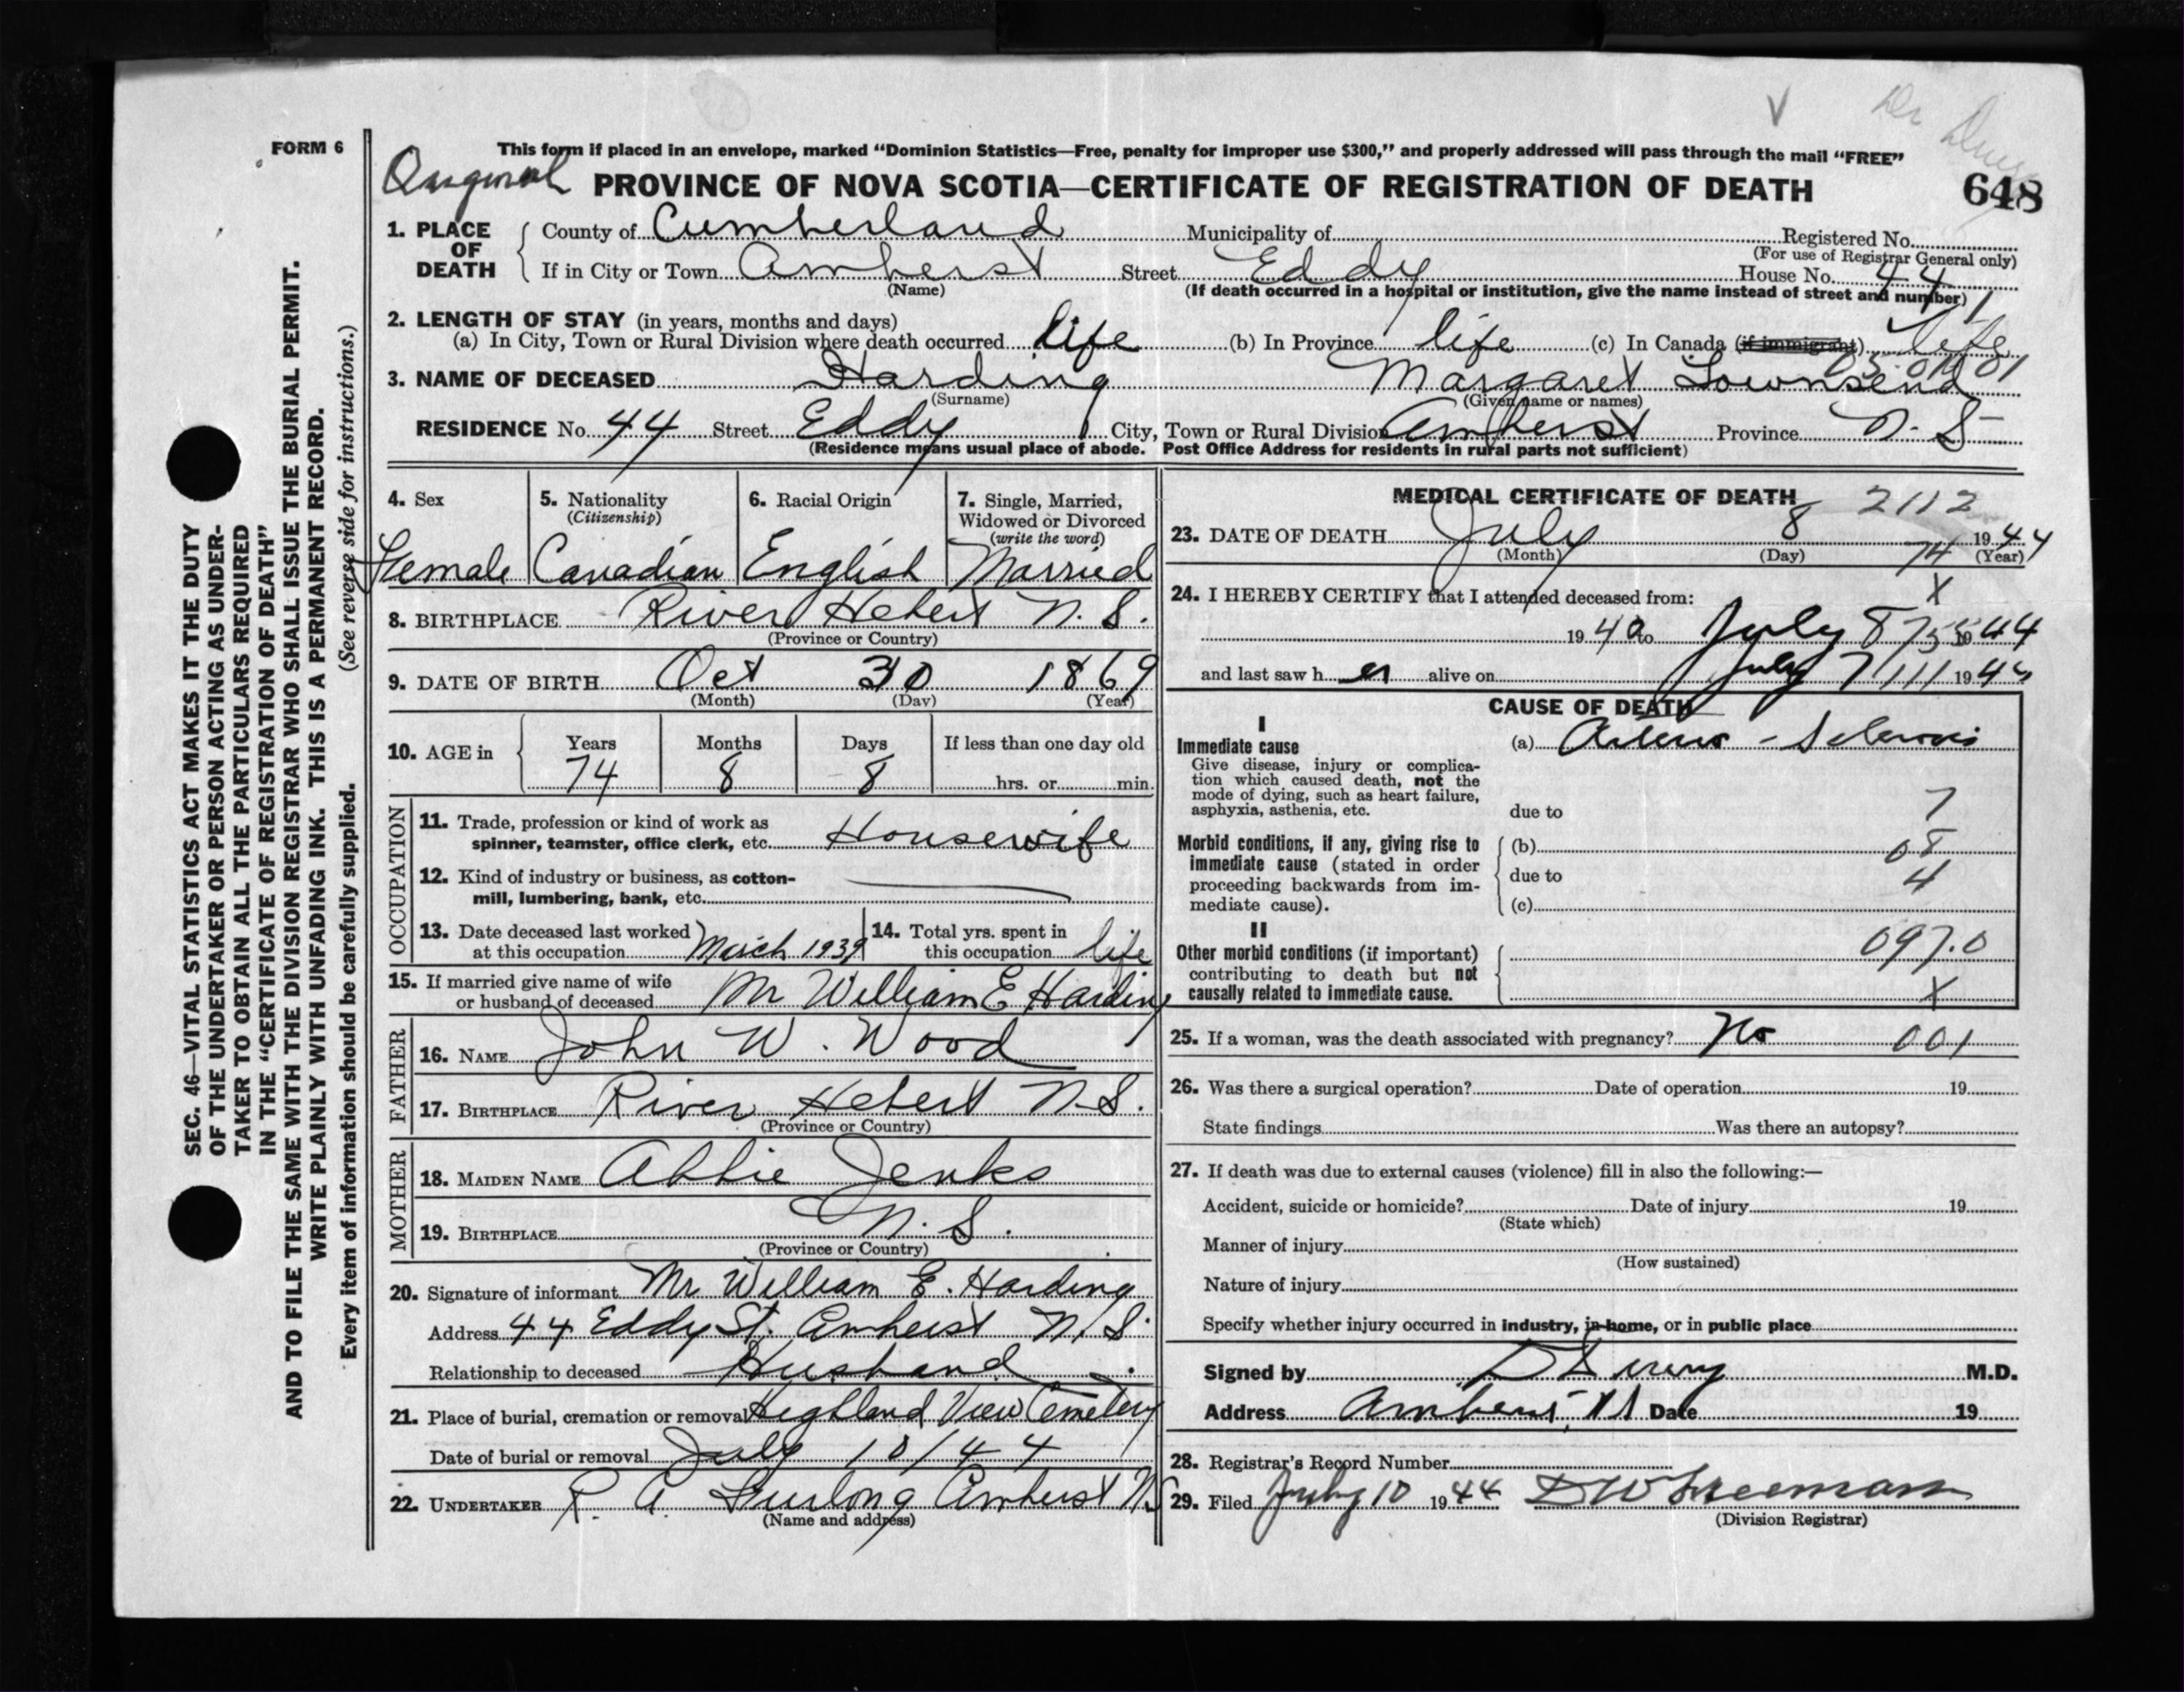 V Dr
FORM 6
This form if placed in an envelope, marked "Dominion Statistics—Free, penalty for improper use $300," and properly addressed will pass through the mail "FREE"
Original PROVINCE OF NOVA SCOTIA—CERTIFICATE OF REGISTRATION OF DEATH 648
1. PLACE OF DEATH { County of Cumberland Municipality of Registered No.
(For use of Registrar General only)
If in City or Town Amherst Street Eddy House No. 44
(Name) (If death occurred in a hospital or institution, give the name instead of street and number) 1
2. LENGTH OF STAY (in years, months and days)
(a) In City, Town or Rural Division where death occurred life (b) In Province life (c) In Canada (if immigrant) life
3. NAME OF DECEASED Harding Margaret Townsend
(Surname) (Given name or names)
RESIDENCE No. 44 Street Eddy City, Town or Rural Division Amherst Province N.S
(Residence means usual place of abode. Post Office Address for residents in rural parts not sufficient)
4. Sex 5. Nationality (Citizenship) 6. Racial Origin 7. Single, Married, Widowed or Divorced (write the word)
Female Canadian English Married
8. BIRTHPLACE River Hebert N.S.
(Province or Country)
9. DATE OF BIRTH Oct 30 1869
(Month) (Day) (Year)
10. AGE in { Years Months Days If less than one day old
74 8 8 hrs. or min.
OCCUPATION
11. Trade, profession or kind of work as
spinner, teamster, office clerk, etc. Housewife
12. Kind of industry or business, as cotton-
mill, lumbering, bank, etc.
13. Date deceased last worked 14. Total yrs. spent in
at this occupation March 1939 this occupation life
15. If married give name of wife
or husband of deceased Mr William E Harding
FATHER
16. NAME John W. Wood
17. BIRTHPLACE River Hebert N.S.
(Province or Country)
MOTHER
18. MAIDEN NAME Abbie Jenks
19. BIRTHPLACE N.S.
(Province or Country)
20. Signature of informant Mr William E. Harding
Address 44 Eddy St. Amherst N.S.
Relationship to deceased Husband
21. Place of burial, cremation or removal Highland View Cemetery
Date of burial or removal July 10/44
22. UNDERTAKER R. A. Furlong Amherst NS
(Name and address)
MEDICAL CERTIFICATE OF DEATH 2112
23. DATE OF DEATH July 8 1944
(Month) (Day) 74 (Year)
24. I HEREBY CERTIFY that I attended deceased from: X
1940 to July 8 1944
and last saw her alive on July 7 1944
CAUSE OF DEATH
I
Immediate cause (a) Arterio-Sclerosis
Give disease, injury or complica-
tion which caused death, not the
mode of dying, such as heart failure,
asphyxia, asthenia, etc. due to 7
Morbid conditions, if any, giving rise to (b) 08
immediate cause (stated in order
proceeding backwards from im- due to 4
mediate cause). (c)
II
Other morbid conditions (if important) 097.0
contributing to death but not
causally related to immediate cause. X
25. If a woman, was the death associated with pregnancy? No 001
26. Was there a surgical operation? Date of operation 19
State findings Was there an autopsy?
27. If death was due to external causes (violence) fill in also the following:—
Accident, suicide or homicide? Date of injury 19
(State which)
Manner of injury
(How sustained)
Nature of injury
Specify whether injury occurred in industry, in home, or in public place
Signed by M.D.
Address Amherst, NS Date 19
28. Registrar's Record Number
29. Filed July 10 1944 D W Freeman
(Division Registrar)
SEC. 46—VITAL STATISTICS ACT MAKES IT THE DUTY
OF THE UNDERTAKER OR PERSON ACTING AS UNDER-
TAKER TO OBTAIN ALL THE PARTICULARS REQUIRED
IN THE "CERTIFICATE OF REGISTRATION OF DEATH"
AND TO FILE THE SAME WITH THE DIVISION REGISTRAR WHO SHALL ISSUE THE BURIAL PERMIT.
WRITE PLAINLY WITH UNFADING INK. THIS IS A PERMANENT RECORD.
Every item of information should be carefully supplied. (See reverse side for instructions.)